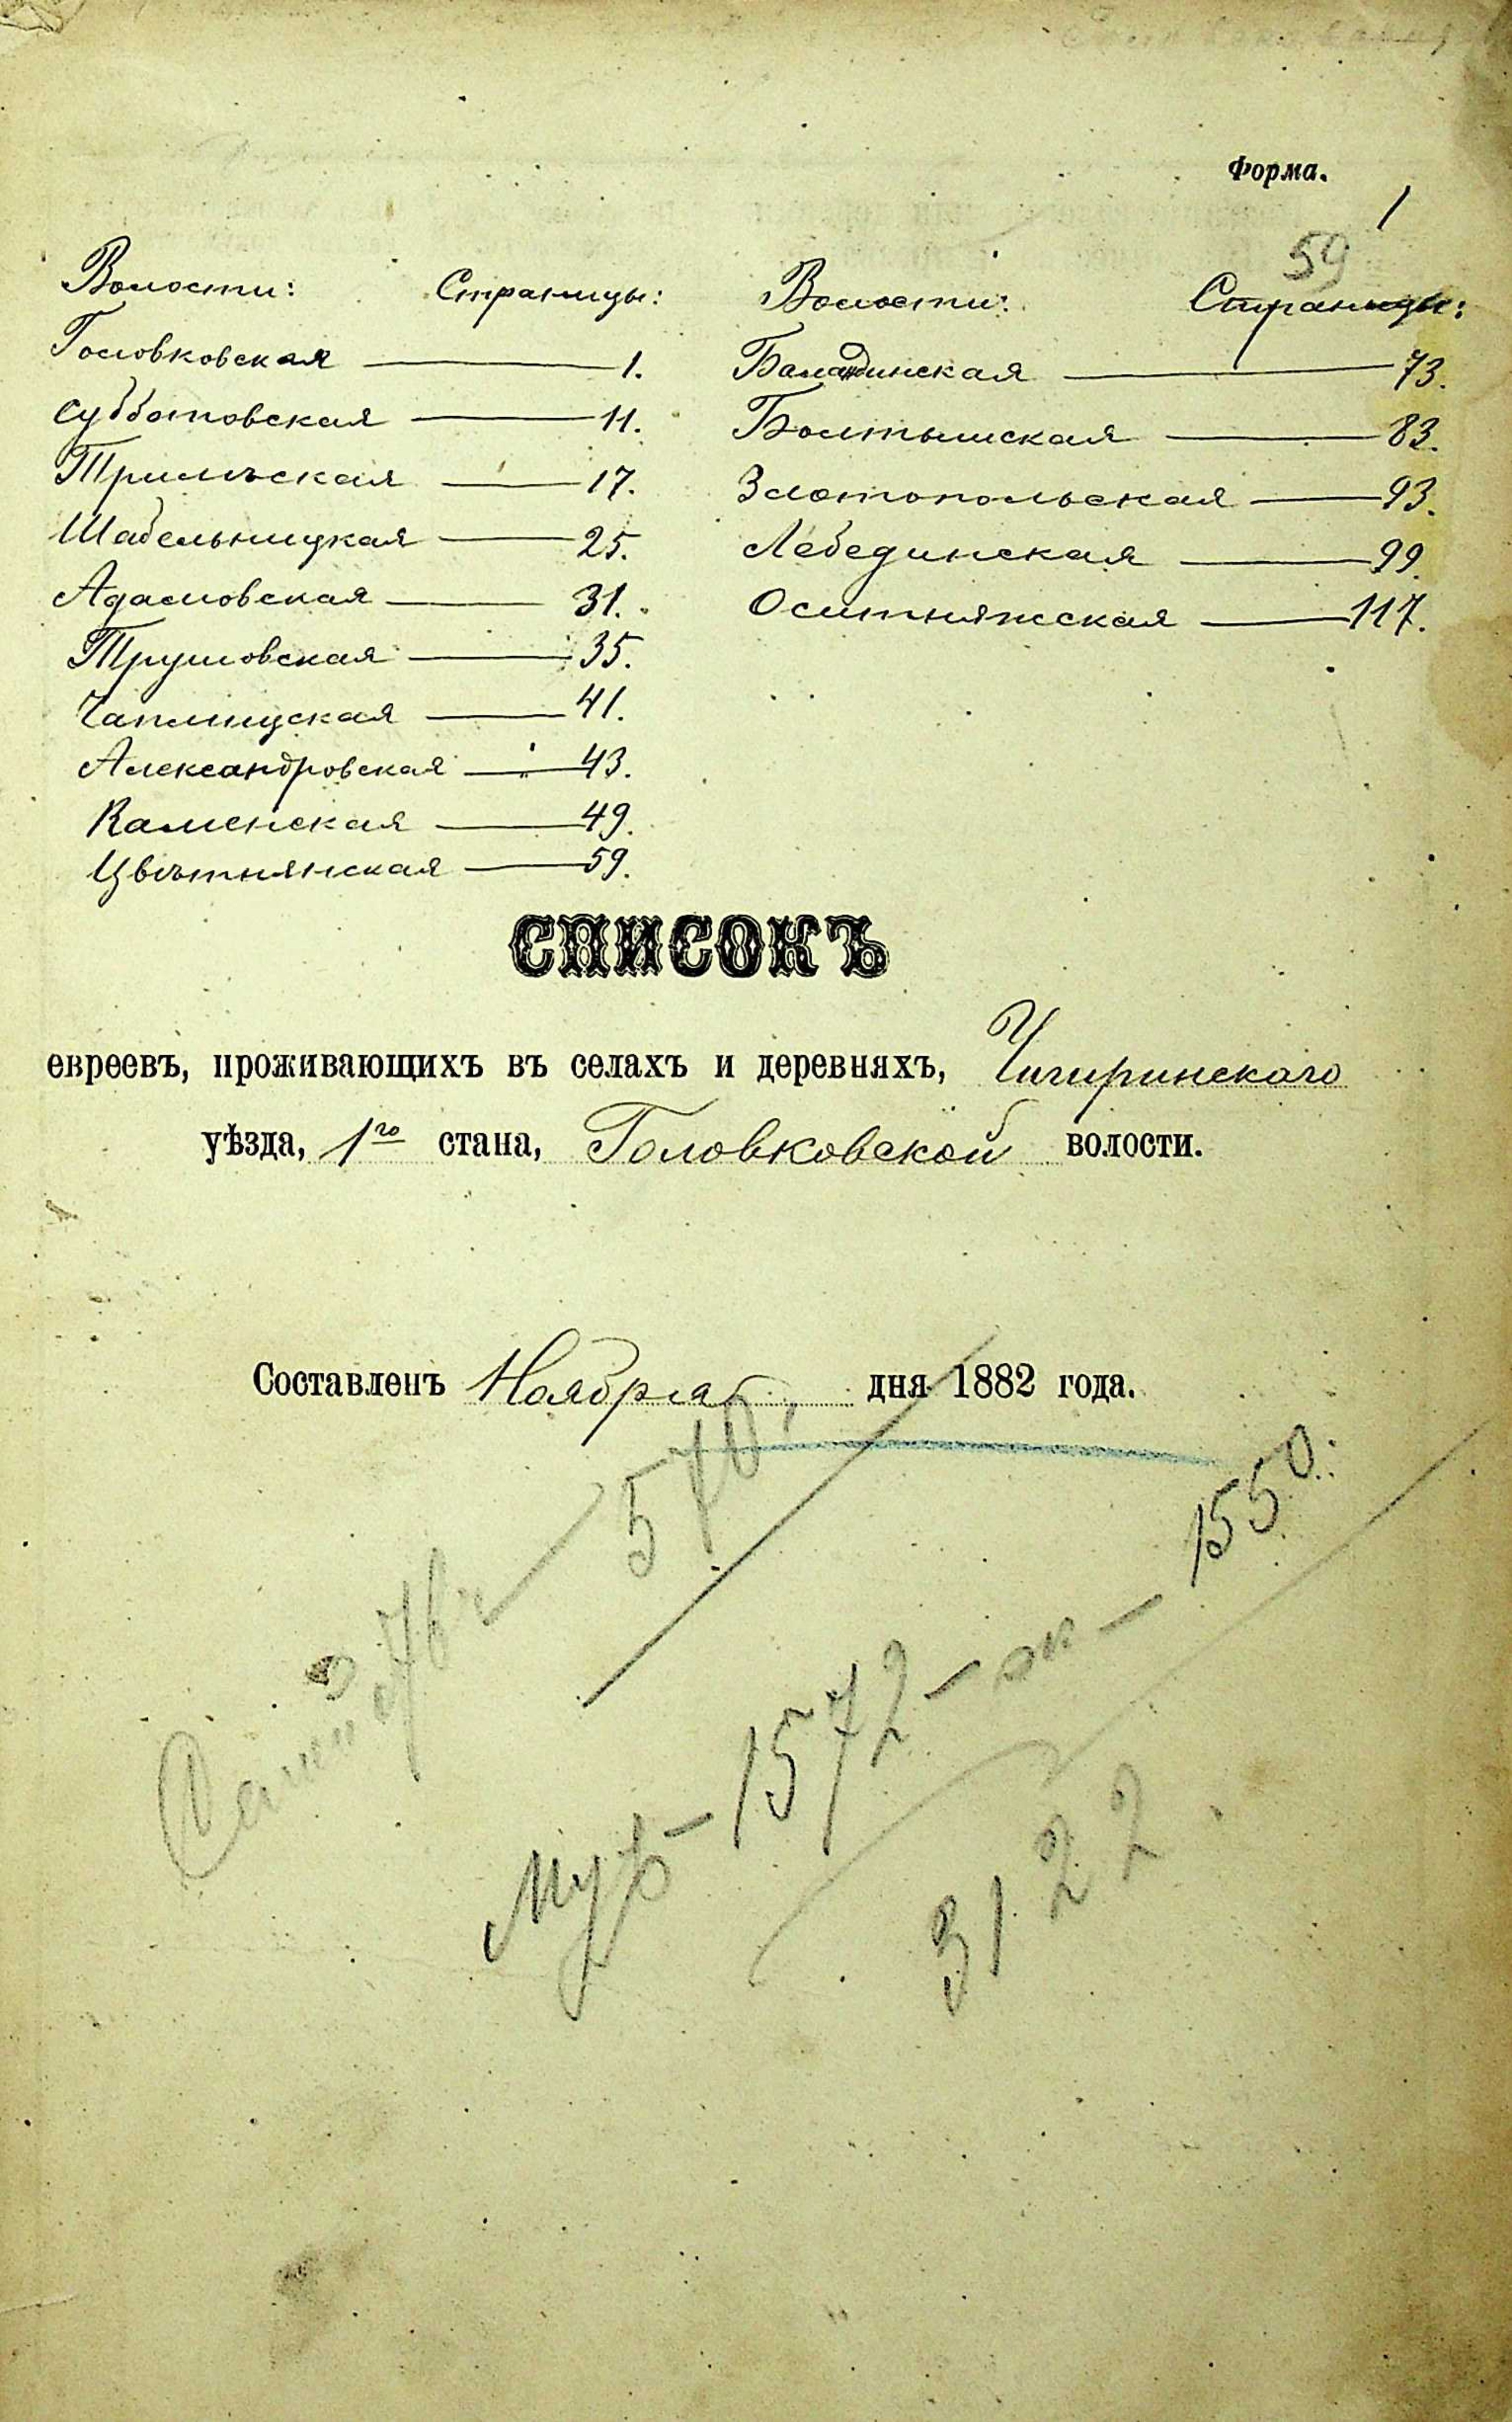 Форма.
1
59
Волости: Страницы:
Головковская — 1.
Субботовская — 11.
Трилѣская — 17.
Шабельницкая — 25.
Адамовская — 31.
Трушовская — 35.
Чаплищская — 41.
Александровская — 43.
Каменская — 49.
Цвѣтнянская — 59.
Волости: Страницы:
Баландинская — 73.
Болтышская — 83.
Златопольская — 93.
Лебединская — 99.
Оситняжская — 117.
СПИСОКЪ
евреевъ, проживающихъ въ селахъ и деревняхъ, Чигиринскаго
уѣзда, 1го стана, Головковской волости.
Составленъ Ноября дня 1882 года.
570
Муж - 1572 - жк - 1550
3122